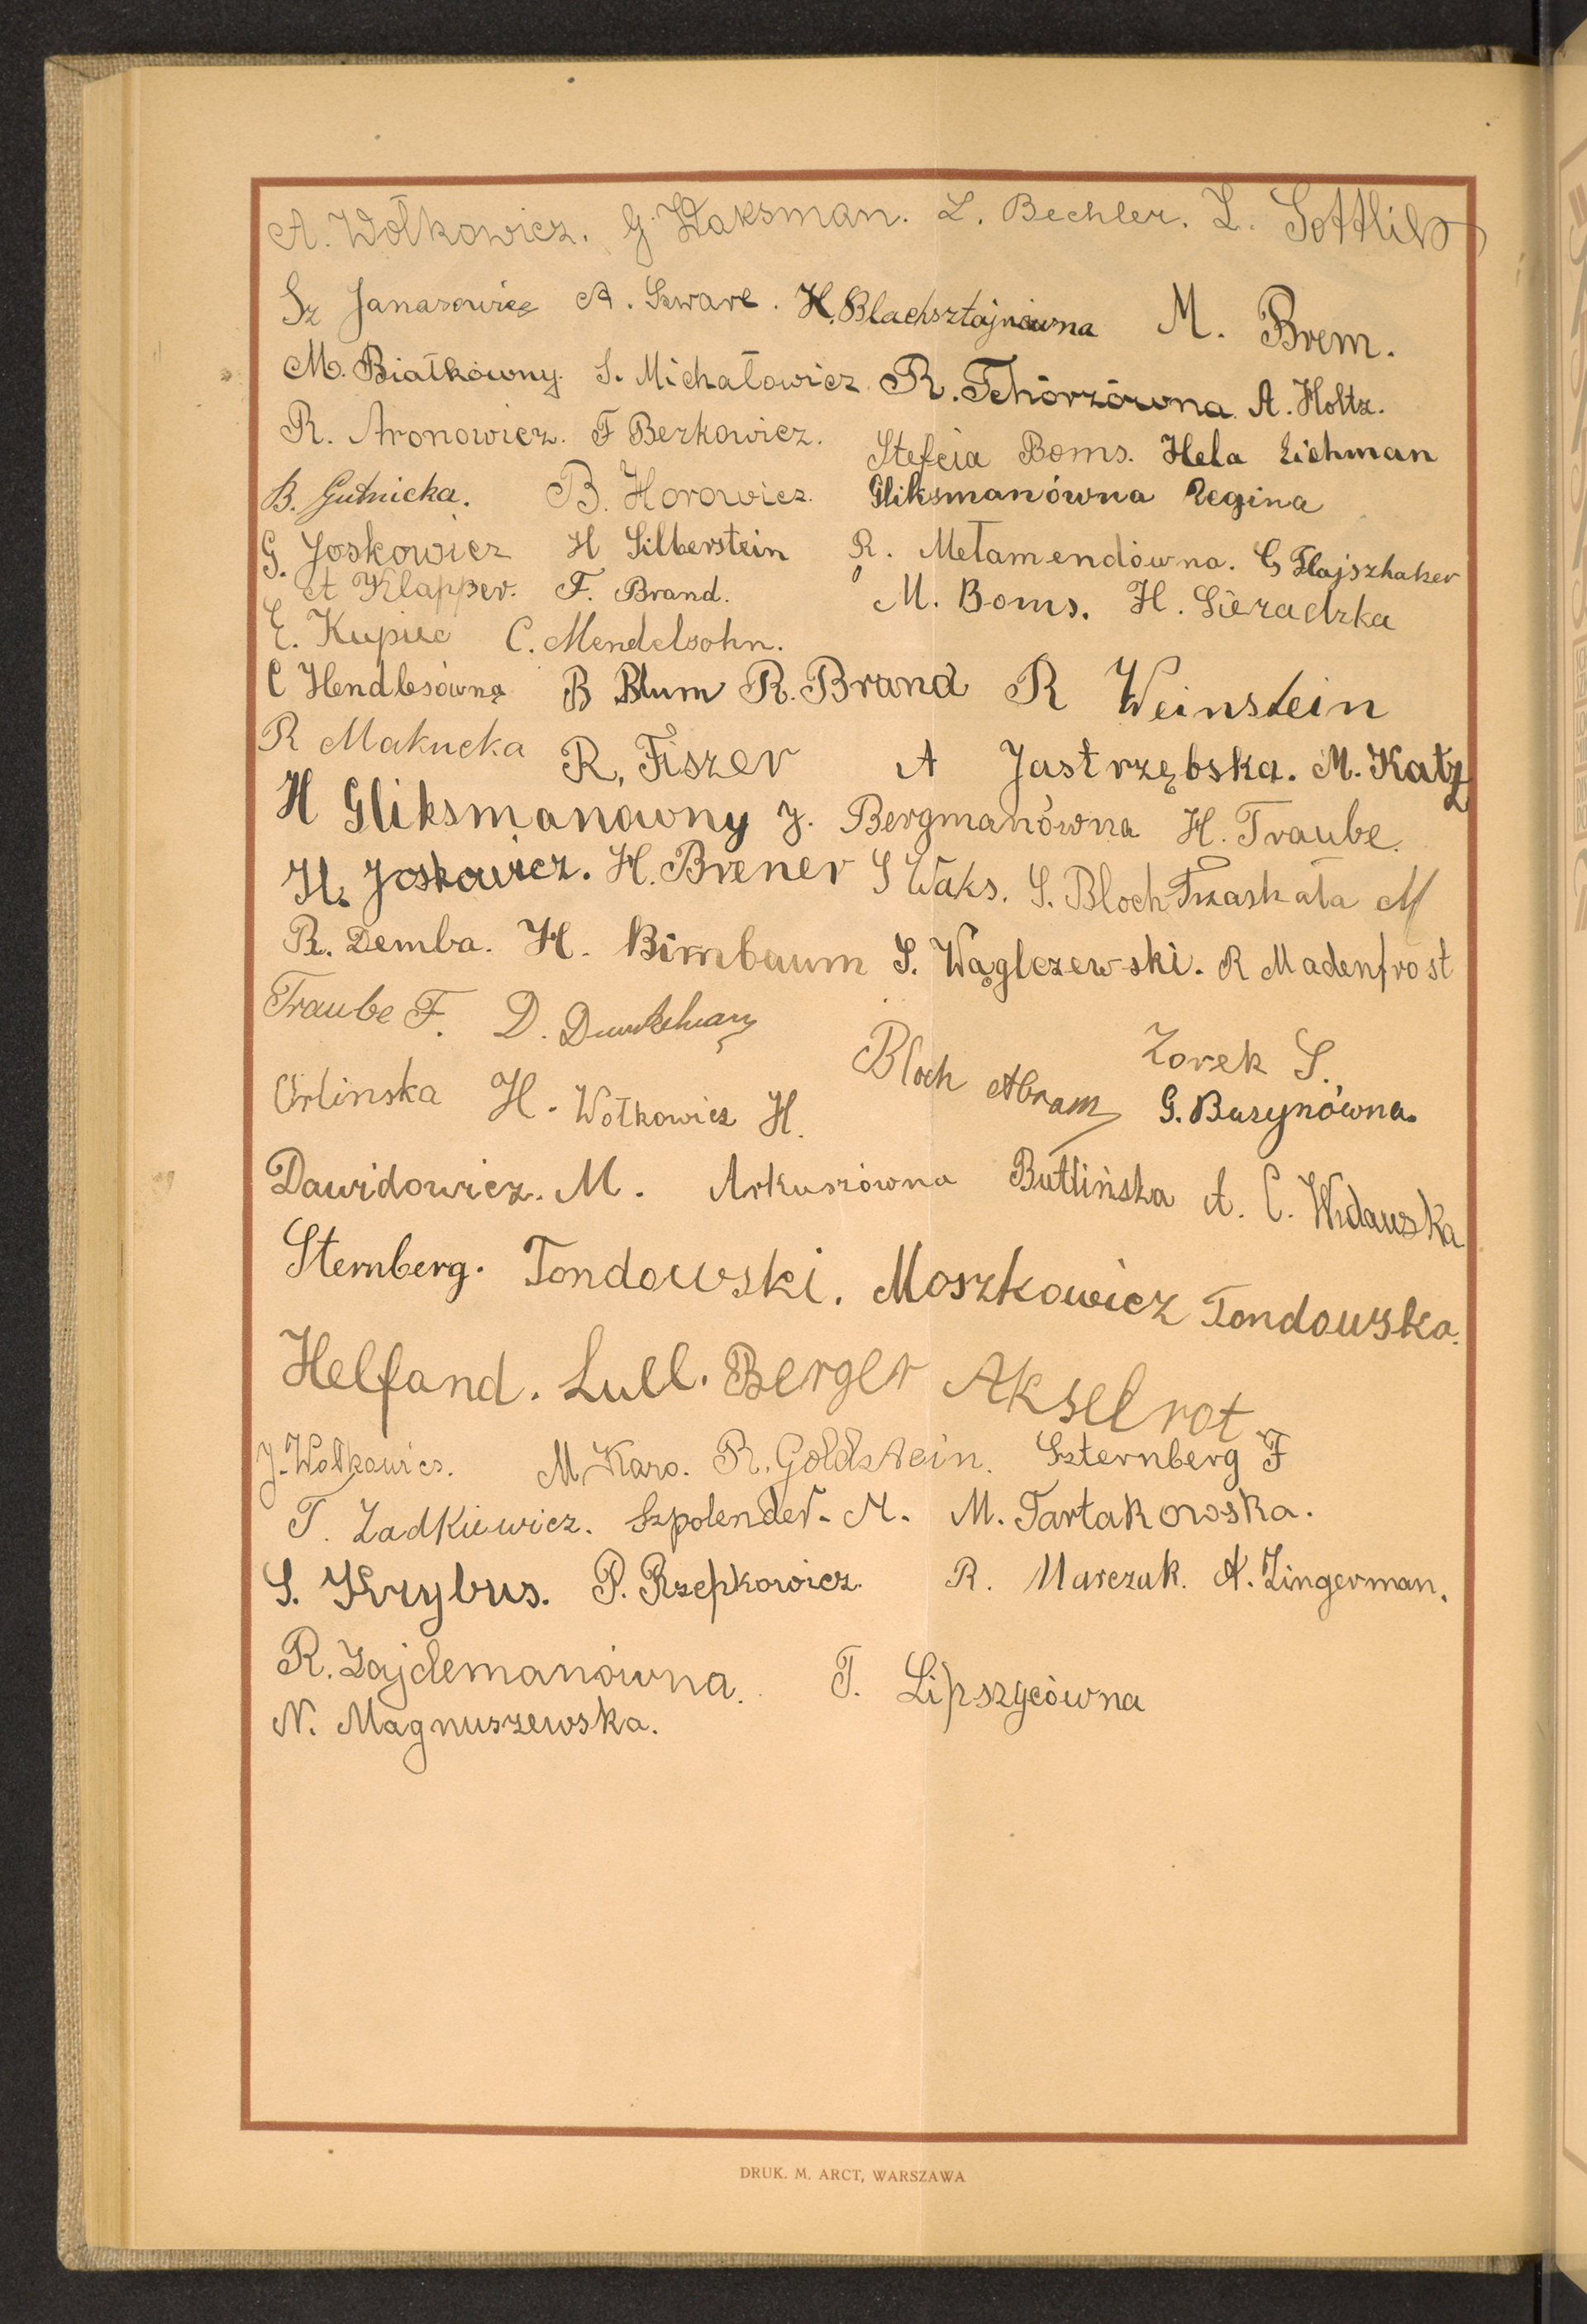 A. Wołkowicz. G. Waksman. L. Bechler. L. Gottlib
Sz Janasowicz A. Szwarc. H. Blachsztajnówna M. Brem.
M. Białkówny. S. Michałowicz R. Tchórzówna A. Holtz.
R. Aronowicz. F Berkowicz. Stefcia Boms. Hela Eichman
B. Gutnicka. B. Horowicz. Gliksmanówna Regina
G. Joskowicz H Silberstein R. Mełamendówna. G Flajszhaker
A Klapper. F. Brand. M. Boms. H. Sieradzka
E. Kupiec C. Mendelsohn.
C Hendlesówna B Blum R. Brand R Weinstein
R Makucka R. Fiszer A Jastrzębska. M. Katz
H Gliksmanówny J. Bergmanówna H. Traube.
H. Joskowicz. H. Brener S Waks. S. Bloch Trzaskała M
R. Demba. H. Birnbaum S. Wąglczewski. R Madenfrost
Traube F. D.
Bloch Abram Zorek S.
Orlinska H. Wołkowicz H. G. Buzynówna.
Dawidowicz. M. Arkuszówna Butlińska A. C. Widawska
Sternberg. Tondowski. Moszkowicz Tondowska.
Helfand. Lull. Berger Akselrot
J. Wołkowicz. M. Karo. R. Goldsztein. Szternberg F
T. Zadkiewicz. Szpolender. M. M. Tartakowska.
S. Krybus. P. Rzepkowicz. R. Marczak. A. Zingerman.
R. Zajdemanówna. T. Lipszycówna
N. Magnuszewska.
DRUK. M. ARCT, WARSZAWA